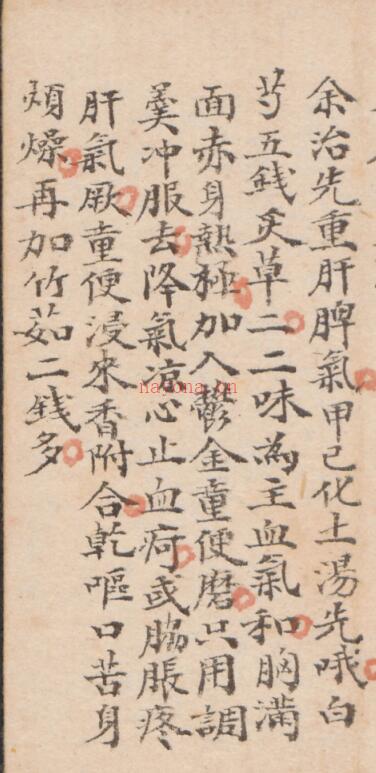 余治先重肝脾氣甲己化土湯先哦白
芍五錢炙草二二味為主血氣和胸滿
面赤身熱極加入鬱金童便磨只用調
羹冲服去降氣凉心止血疴或脇脹疼
肝氣厥童便浸來香附合乾嘔口苦身
煩燥再加竹茹二錢多
nayona.cn